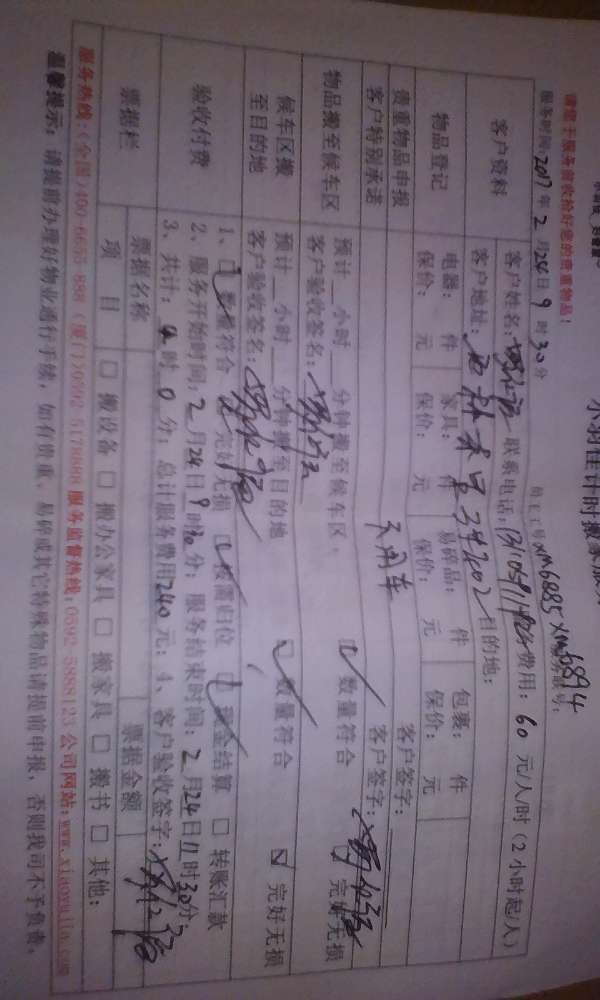 小羽佳计时搬家服务
请您于服务前收拾好您的贵重物品!
员工工号 xm6885 xm6894
服务时间: 2017 年 2 月 24 日 9 时 30 分
客户资料
客户姓名: 联系电话: 服务费用: 60 元/人/时 (2小时起/人)
客户地址: 目的地:
物品登记
电器: 件 家具: 件 易碎品: 件 包裹: 件
保价: 元 保价: 元 保价: 元 保价: 元
贵重物品申报 客户签字:
客户特别承诺 不用车 客户签字:
物品搬至候车区
预计 小时 分钟搬至候车区, ☑ 数量符合 ☑ 完好无损
客户验收签名:
候车区搬至目的地
预计 小时 分钟搬至目的地 ☑ 数量符合 ☑ 完好无损
客户验收签名:
验收付费
1、☑ 数量符合 ☑ 完好无损 ☑ 按需归位 ☑ 现金结算 ☐ 转账汇款
2、服务开始时间: 2 月 24 日 9 时 30 分; 服务结束时间: 2 月 24 日 11 时 30 分;
3、共计: 4 时 0 分; 总计服务费用 240 元; 4、客户验收签字:
票据栏
票据名称 票据金额
项 目 ☐ 搬设备 ☐ 搬办公家具 ☐ 搬家具 ☐ 搬书 ☐ 其他:
服务热线: (全国)400-6655-888 (厦门)0592-5178888 服务监督热线: 0592-5888123 公司网站: www.xiaoyujia.com
温馨提示: 请提前办理好物业通行手续, 如有贵重、易碎或其它特殊物品请提前申报, 否则我司不予负责。